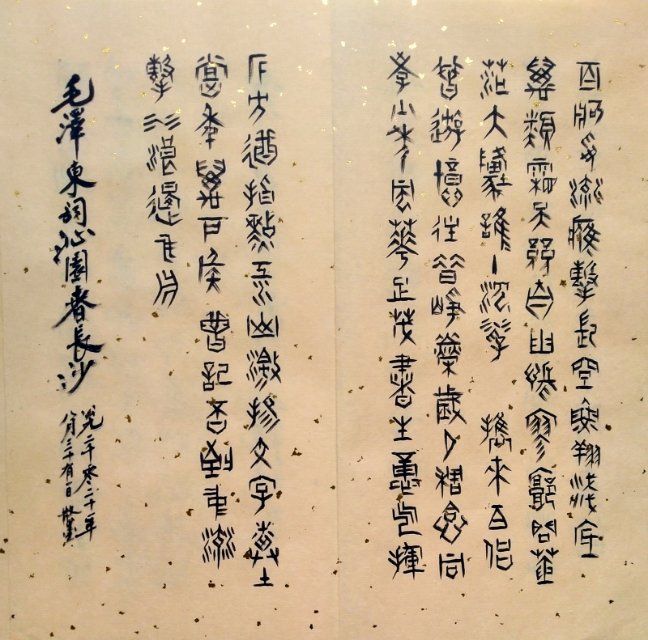 百舸爭流鷹擊長空魚翔淺底
萬類霜天競自由悵寥廓問蒼
茫大地誰主沉浮 攜來百侶
曾遊憶往昔崢嶸歲月稠恰同
學少年風華正茂書生意氣揮
斥方遒指點江山激揚文字糞土
當年萬戶侯曾記否到中流
擊水浪遏飛舟
毛澤東詞沁園春長沙
二千零二十年
八月三十有日